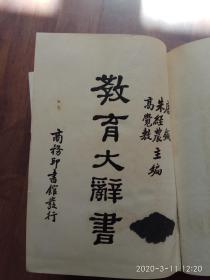 唐鉞
朱經農 主編
高覺敷
教育大辭書
商務印書館發行
2020-3-11 12:20